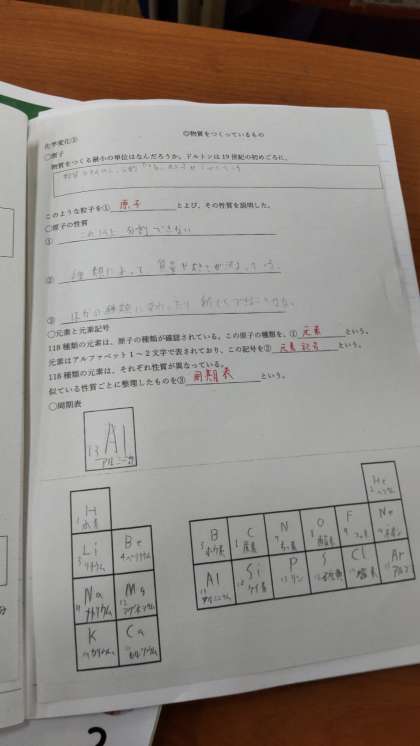 化学変化①
◎物質をつくっているもの
○原子
物質をつくる最小の単位はなんだろうか。ドルトンは19世紀の初めごろに、
このような粒子を① 原子 とよび、その性質を説明した。
○原子の性質
① これ以上 分割 できない
② 種類によって 質量や大きさが決まっている。
③ ほかの種類に変わったり 新しくできたり
○元素と元素記号
118種類の元素は、原子の種類が確認されている。この原子の種類を、① 元素 という。
元素はアルファベット1~2文字で表されており、この記号を② 元素記号 という。
118種類の元素は、それぞれ性質が異なっている。
似ている性質ごとに整理したものを③ 周期表 という。
○周期表
13 Al アルミニウム
H 水素
He ヘリウム
Li リチウム Be ベリリウム B ホウ素 C 炭素 N 窒素 O 酸素 F フッ素 Ne ネオン
Na ナトリウム Mg マグネシウム Al アルミニウム Si ケイ素 P リン S Cl 塩素 Ar アルゴン
K カリウム Ca カルシウム